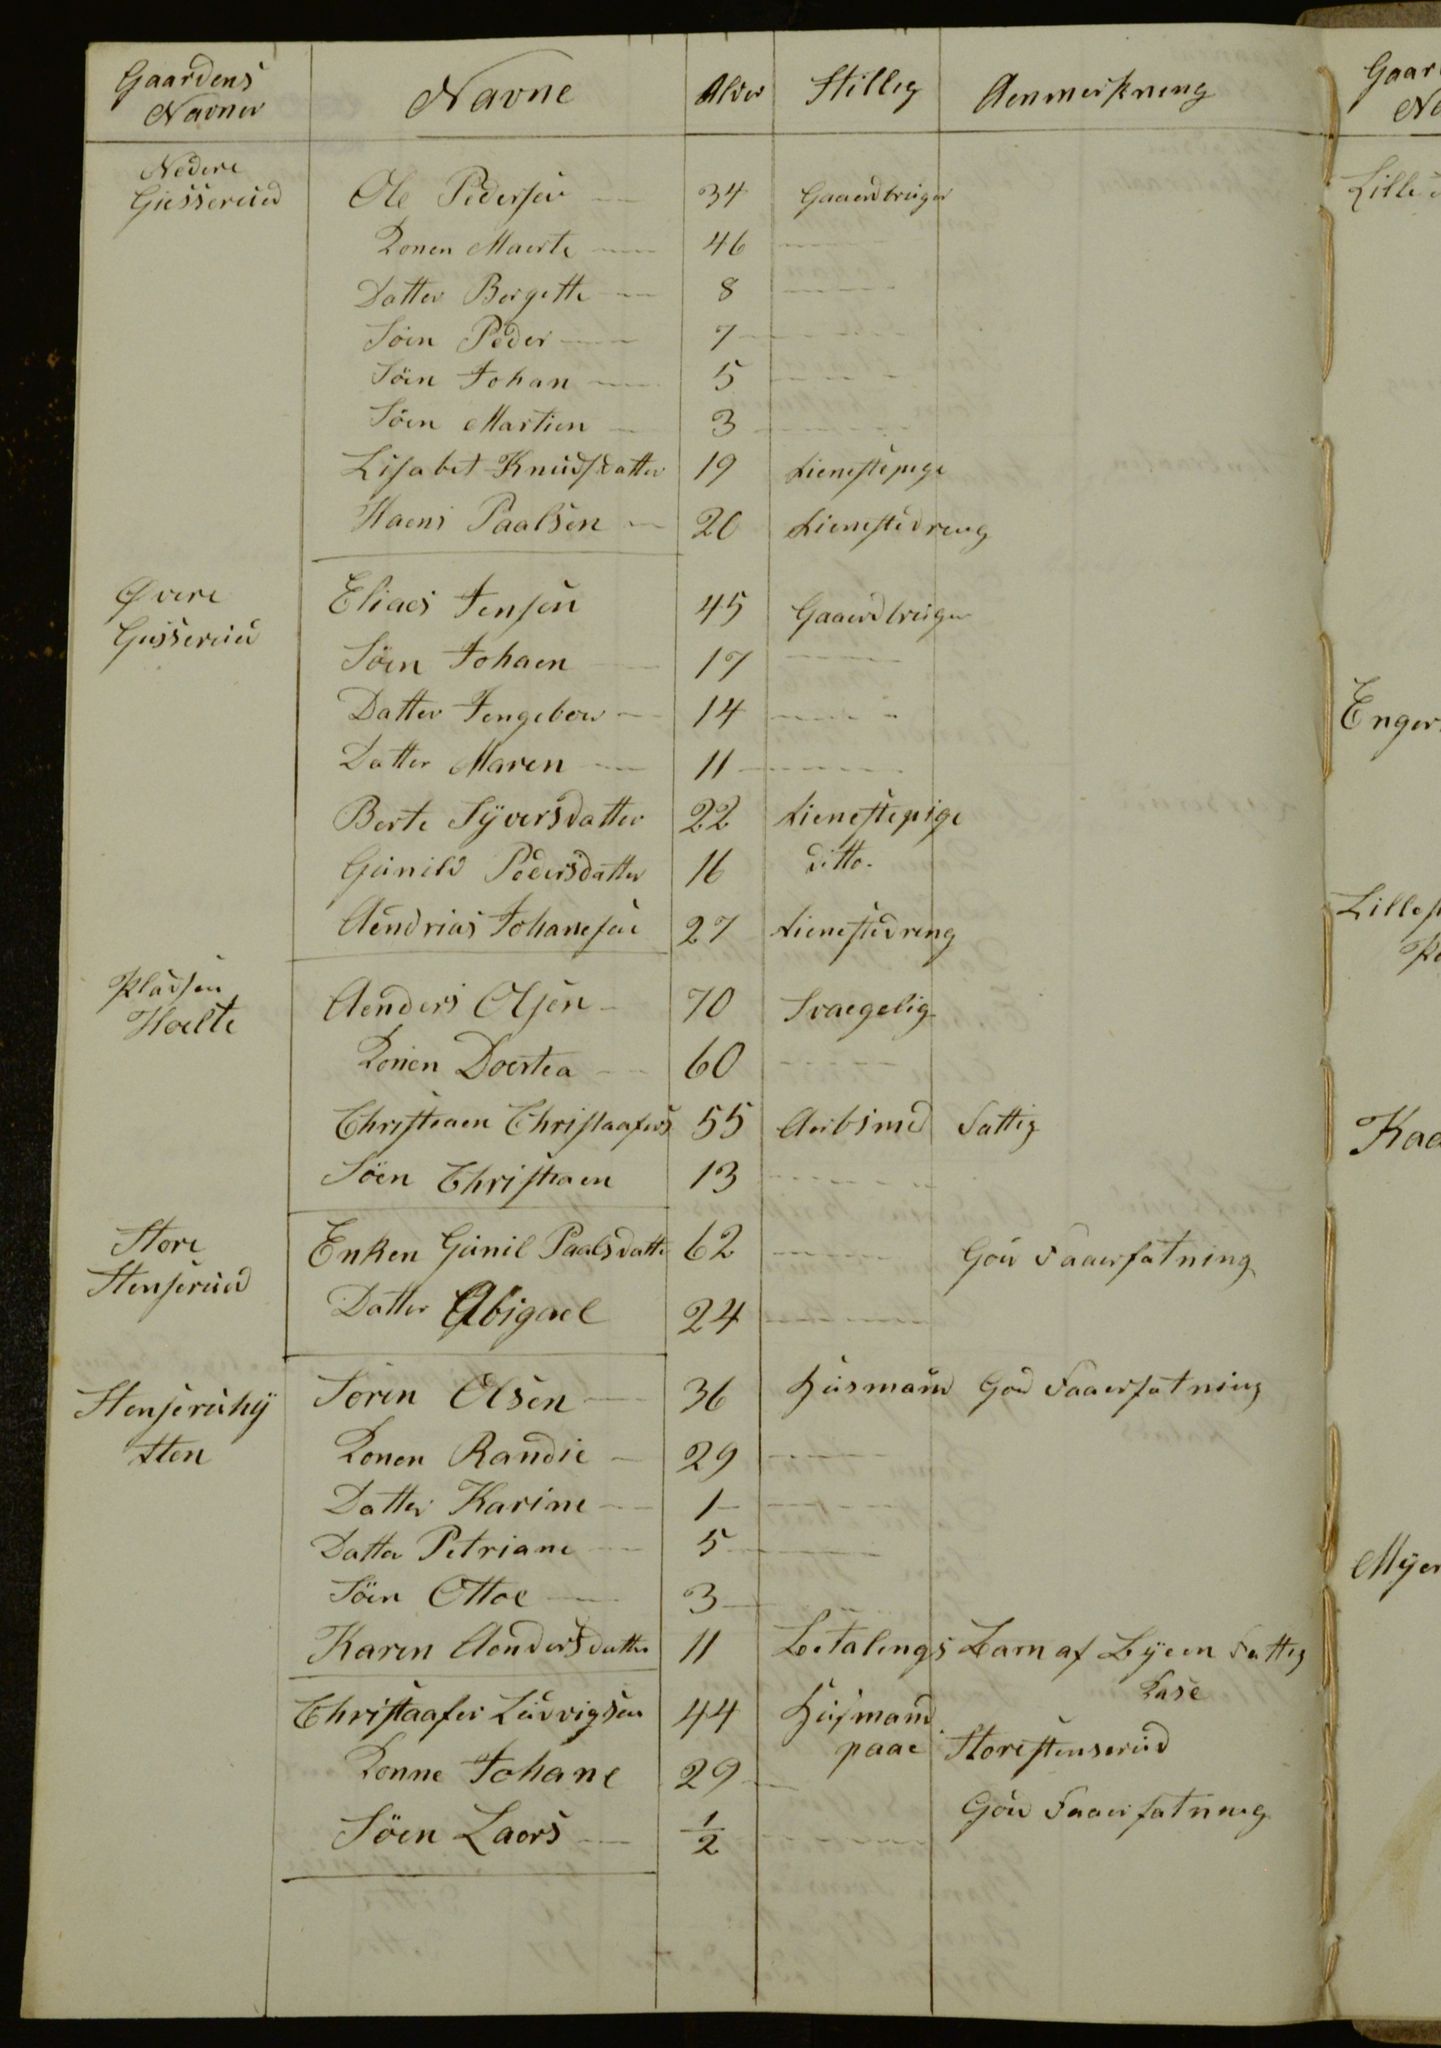 Gaardens Navner | Navne | Alder | Stillig | Aenmerkning
Nedere Giesserud | Ole Pedersen | 34 | Gaaerdbruger
Konen Maerte | 46
Datter Bergette | 8
Søen Peder | 7
Søen Johan | 5
Søen Martien | 3
Lisabet Knudsdatter | 19 | tienestepige
Haens Paalsen | 20 | tienestedreng
Øvere Giesserud | Eliaes Jensen | 45 | Gaaerdbruger
Søen Johaen | 17
Datter Jengebor | 14
Datter Maren | 11
Berte Syversdatter | 22 | tienestepige
Gunild Pedersdatter | 16 | ditto
Aendrias Johanesen | 27 | tienestedreng
Pladsen Hoelte | Aenders Olsen | 70 | Svaegelig
Konen Doertea | 60
Christiaen Christaafers | 55 | Aerbsmd | Fattig
Søen Christiaen | 13
Store Stenserud | Enken Gunil Paalsdatte | 62 | God Faaerfatning
Datter Abigael | 24
Stenseruhy tten | Soren Olsen | 36 | Husmand | God Faaerfatning
Konen Randie | 29
Datter Karine | 1
Datter Petriane | 5
Søen Ottoe | 3
Karen Aendersdatter | 11 | Betalings Barn af Byeen Fattig
Kase
Christaafer Ludvigsen | 44 | Husmand
paae Storestenserud
Konne Johane | 29
God Faaerfatning
Søen Laers | 1/2
Gaar
Na
Lille
Enger
Lilles
Kaa
Myer